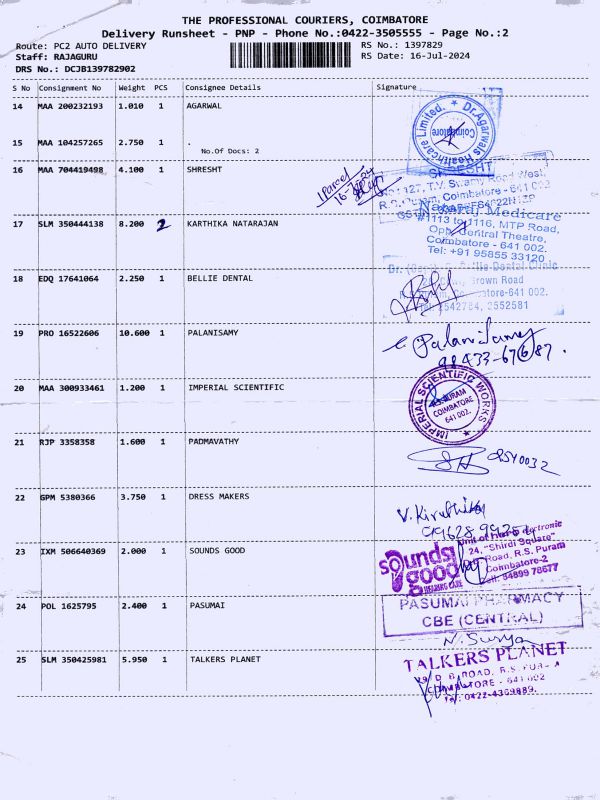 THE PROFESSIONAL COURIERS, COIMBATORE
Delivery Runsheet - PNP - Phone No.:0422-3505555 - Page No.:2
Route: PC2 AUTO DELIVERY
RS No.: 1397829
Staff: RAJAGURU
RS Date: 16-Jul-2024
DRS No.: DCJB139782902
S No Consignment No Weight PCS Consignee Details Signature
14 MAA 200232193 1.010 1 AGARWAL
Dr.Agarwals Healthcare Limited. Coimbatore
15 MAA 104257265 2.750 1 .
No.Of Docs: 2
16 MAA 704419498 4.100 1 SHRESHT
1 Parcel
127, T.V. Swamy Road West,
Coimbatore - 641
17 SLM 350444138 8.200 2 KARTHIKA NATARAJAN
Nataraj Medicare
#1113 to 1116, MTP Road,
Opp. Central Theatre,
Coimbatore - 641 002.
Tel: +91 95855 33120
18 EDQ 17641064 2.250 1 BELLIE DENTAL
Dental Clinic
Brown Road
641-002.
2542784, 2552581
19 PRO 16522606 10.600 1 PALANISAMY
Palanisamy
98433-67687.
20 MAA 300933461 1.200 1 IMPERIAL SCIENTIFIC
IMPERIAL SCIENTIFIC WORKS
COIMBATORE
641 002.
21 RJP 3358358 1.600 1 PADMAVATHY
22 GPM 5380366 3.750 1 DRESS MAKERS
V. Kiruthika
23 IXM 506640369 2.000 1 SOUNDS GOOD
sounds good
HEARING CARE
24, "Shirdi Square"
Road, R.S. Puram
Coimbatore-2
Cell: 94899 78677
24 POL 1625795 2.400 1 PASUMAI
PASUMAI PHARMACY
CBE (CENTRAL)
N. Surya
25 SLM 350425981 5.950 1 TALKERS PLANET
TALKERS PLANET
D.B. ROAD, R.S. PURAM
COIMBATORE - 641 002